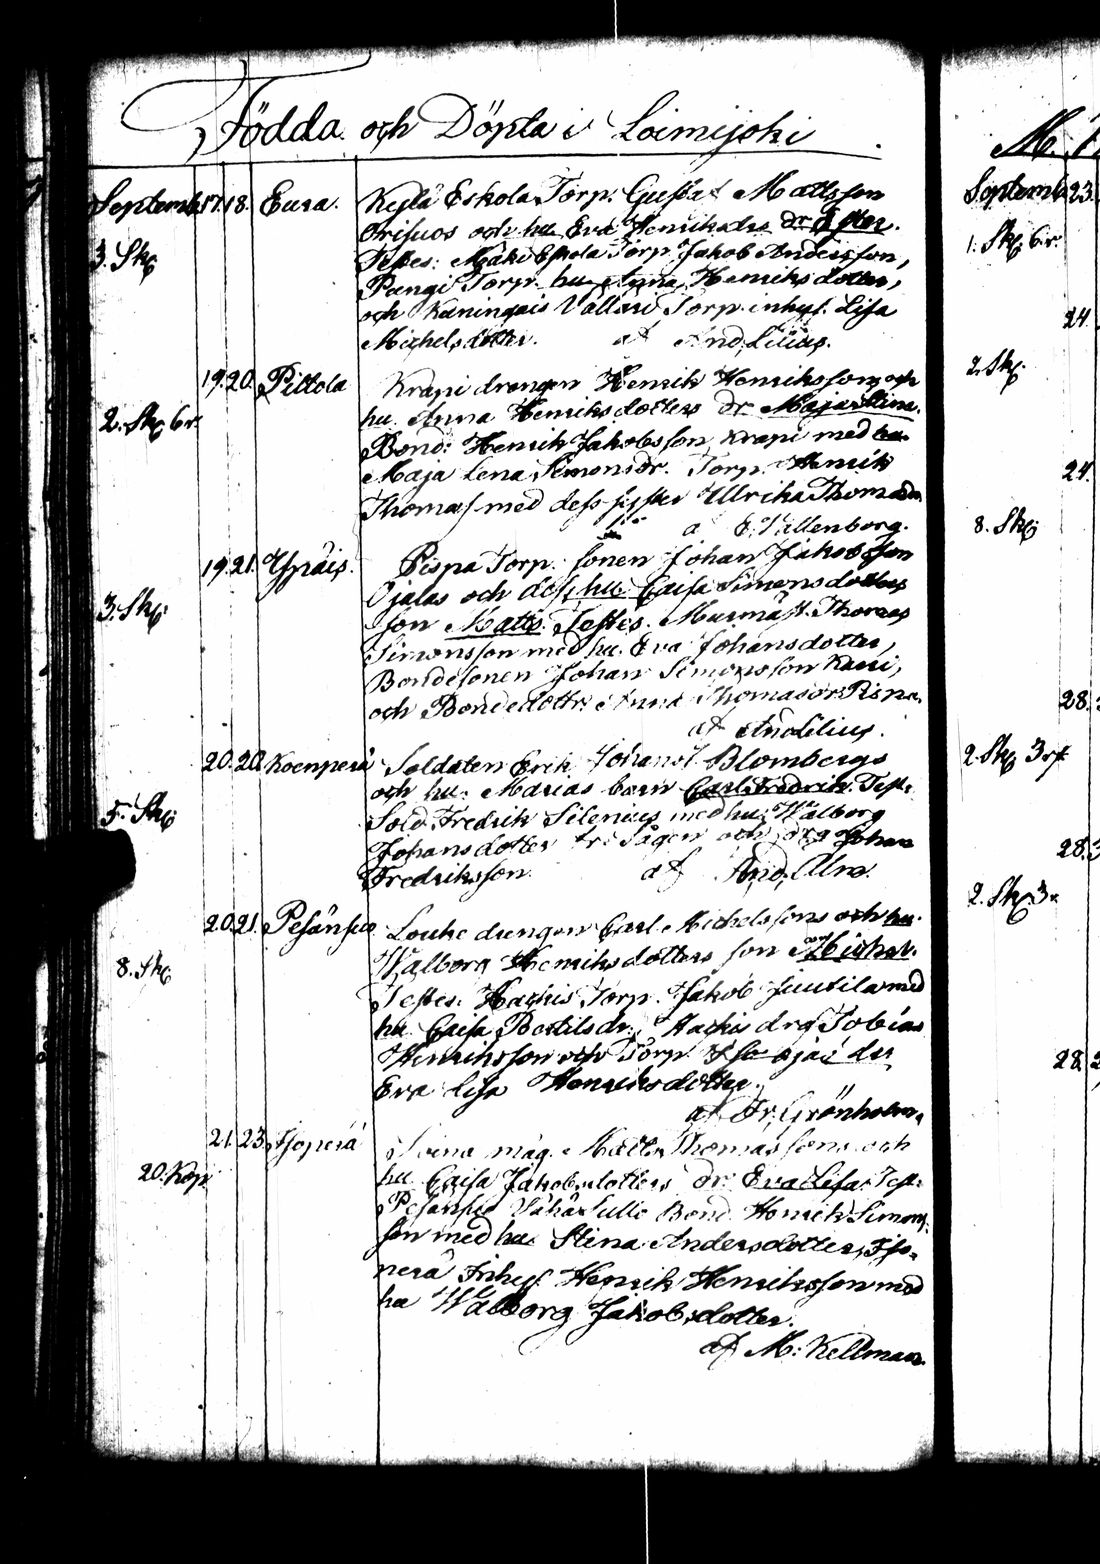 Födda och Döpta i Loimijoki
Septemb. 17.18. Eura. Kylä Eskola Torp. Gustaf Mattsson
3. Sk. och hu. Eva Henriksdrs dr. Ester.
Testes: Mäki Eskola Torp. Jakob Andersson,
Pungi Torp. hu. Anna Henriksdotter,
och Torp. inhys. Lisa
Michelsdotter. af And. Lilius.
19.20. Pittola Krapi drengen Henrik Henriksson och
2. Sk. 6 r. hu. Anna Henriksdotters dr. Maja Stina.
Bond: Henrik Jakobsson Krapi med hu.
Maja Lena Simonsdr. Torp. Henrik
Thomass. med dess syster Ullrika Thomasdr.
a E. Wallenborg.
19.21. Ypäis. Pispa Torp. sonen Johan Jakobsson
Ojalas och dess hu. Caisa Simonsdotters
3. Sk. son Matts. Testes. Murmäst. Thomas
Simonsson med hu. Eva Johansdotter,
Bondesonen Johan Simonsson
och Bondedottr. Anna Thomasdr Pispa.
af And Lilius.
20.20. Koenperä Soldaten Erik Johans. Blombergs
och hu. Marias barn Carl Fredrik. Test.
5. Sk. Sold. Fredrik Silenius med hu. Walborg
Johansdotter och drg Johan
Fredriksson. af And. Alm.
20.21. Pesänsuo Louhe drengen Carl Michelssons och hu.
8. Sk. Walborg Henriksdotters son Michel.
Testes. Hackis Torp. Jakob Juutila med
hu. Caisa Bertilsdr. Hackis drg Tobias
Henriksson och Torp.
Eva Lisa Henriksdotter.
af Fr. Grönholm.
21.23. måg. Matts Thomassons och
20. Kop. hu. Caisa Jakobsdotters dr. Eva Lisa. Test.
Pesänsuo Bond. Henrik Simons-
son med hu. Stina Andersdotter,
perä Inhys. Henrik Henriksson med
hu Walborg Jakobsdotter.
af M: Kellman.
Septemb. 23.
1. Sk. 6 r.
24.
2. Sk.
24.
8. Sk.
28.
2. Sk. 3
28.
2. Sk. 3
28.